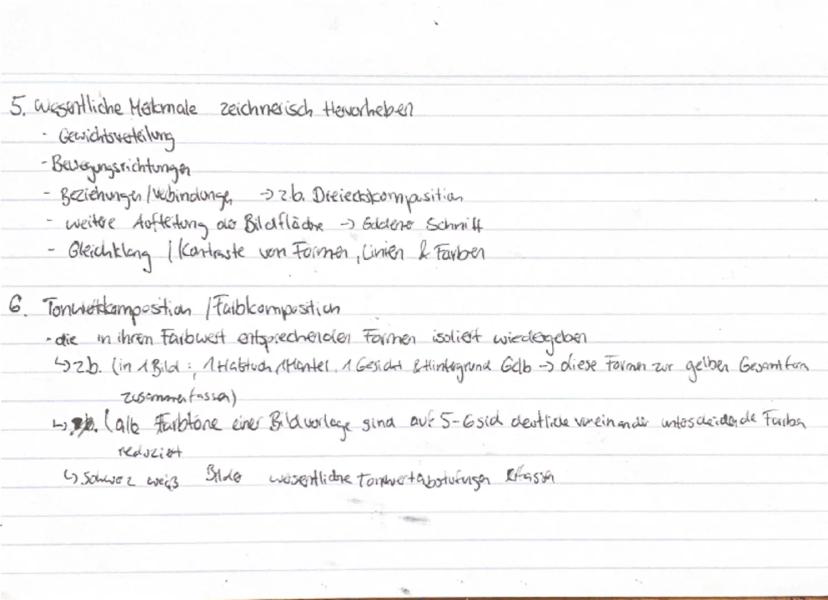 5. Wesentliche Merkmale zeichnerisch Hervorheben
- Gewichtsverteilung
- Bewegungsrichtungen
- Beziehungen/Verbindungen → z.b. Dreieckskomposition
- weitere Aufteilung der Bildfläche → Goldener Schnitt
- Gleichklang / Kontraste von Formen, Linien & Farben
6. Tonwertkomposition / Farbkomposition
- die in ihren Farbwert entsprechenden Formen isoliert wiedergeben
↳ z.b. (in 1 Bild: 1 Halstuch, 1 Mantel, 1 Gesicht & Hintergrund Gelb → diese Formen zur gelben Gesamtform
zusammenfassen)
↳ (alle Farbtöne einer Bildvorlage sind auf 5-6 sich deutlich voneinander unterscheidende Farben
reduziert
↳ Schwarz weiß Bilder wesentliche Tonwertabstufungen erfassen